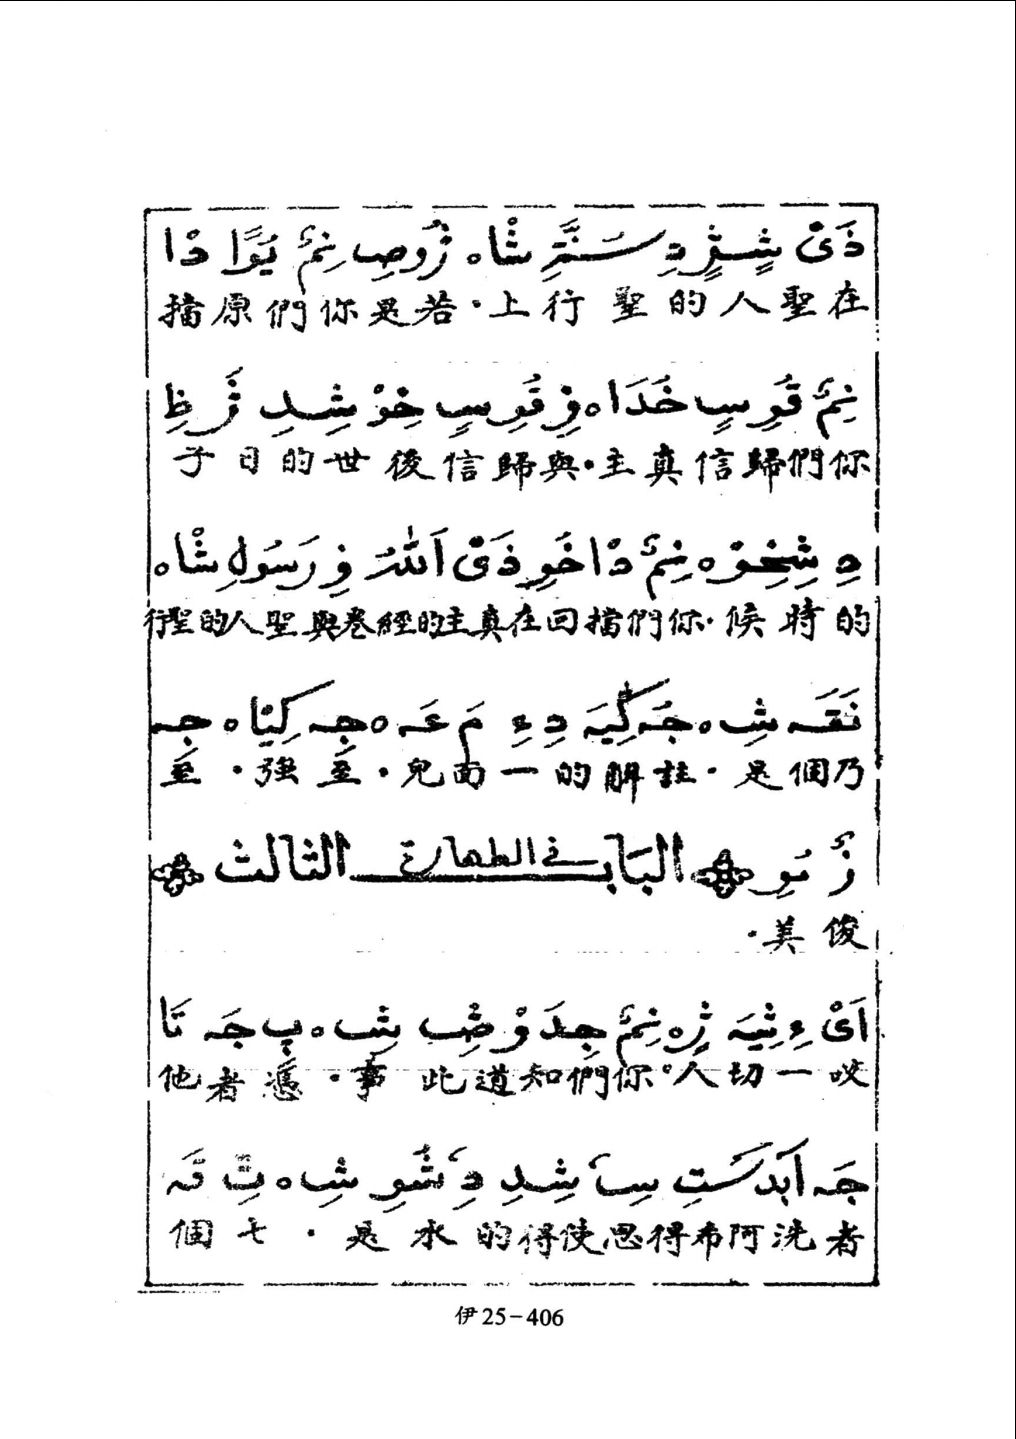 ذَىْ شٍْژٍ دِ سُنَّةِ شْاه ژُوصِ نِمٌ يُوًا دْا
在聖人的聖行上·若是你們原擋
نِمٌ قُوِ سٍ خُدَاه فِ قُوِ سٍ خِوْ شِدِ ژَ ظِ
你們歸信真主·與歸信後世的日子
دِ شِخِوْه نِمٌ دْا خُوِ ذَىْ اَللّٰهُ فِ رَسُولِ شْاه
的時候·你們擋回在真主的經卷與聖人的聖行
نَقَہ شِه جُہ كِيَہ دِءِ مَ عَہ ه جِہ كِيْاه جِہ
乃個是·註解的一面兒·至強·至
ژٌ مُوِ الباب فى الطهارة الثالث
俊美·
اَىْ ءِ ثِيَہ ژٍه نِمٌ جِدَوْ ضِ شِه پِ جَہ تَا
哎一切人·你們知道此事·憑者他
جَہ اَبْدَسْتِ سِ شِدِ دِ شُوِ شِه تِ قَہ
者洗阿布得思使得的水是·七個
伊25-406